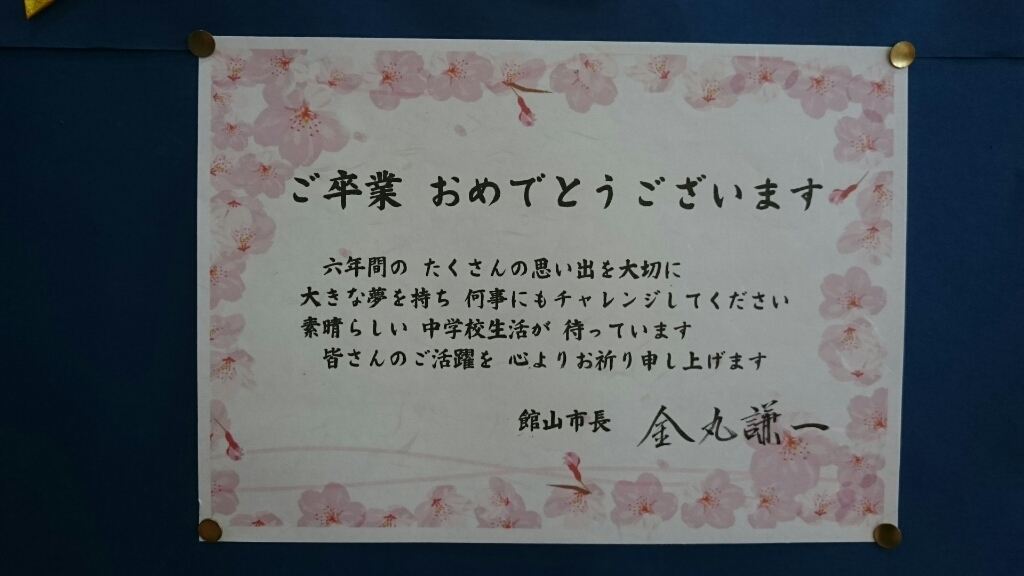 ご卒業 おめでとうございます
六年間の たくさんの思い出を大切に
大きな夢を持ち 何事にもチャレンジしてください
素晴らしい 中学校生活が 待っています
皆さんのご活躍を 心よりお祈り申し上げます
館山市長 金丸謙一